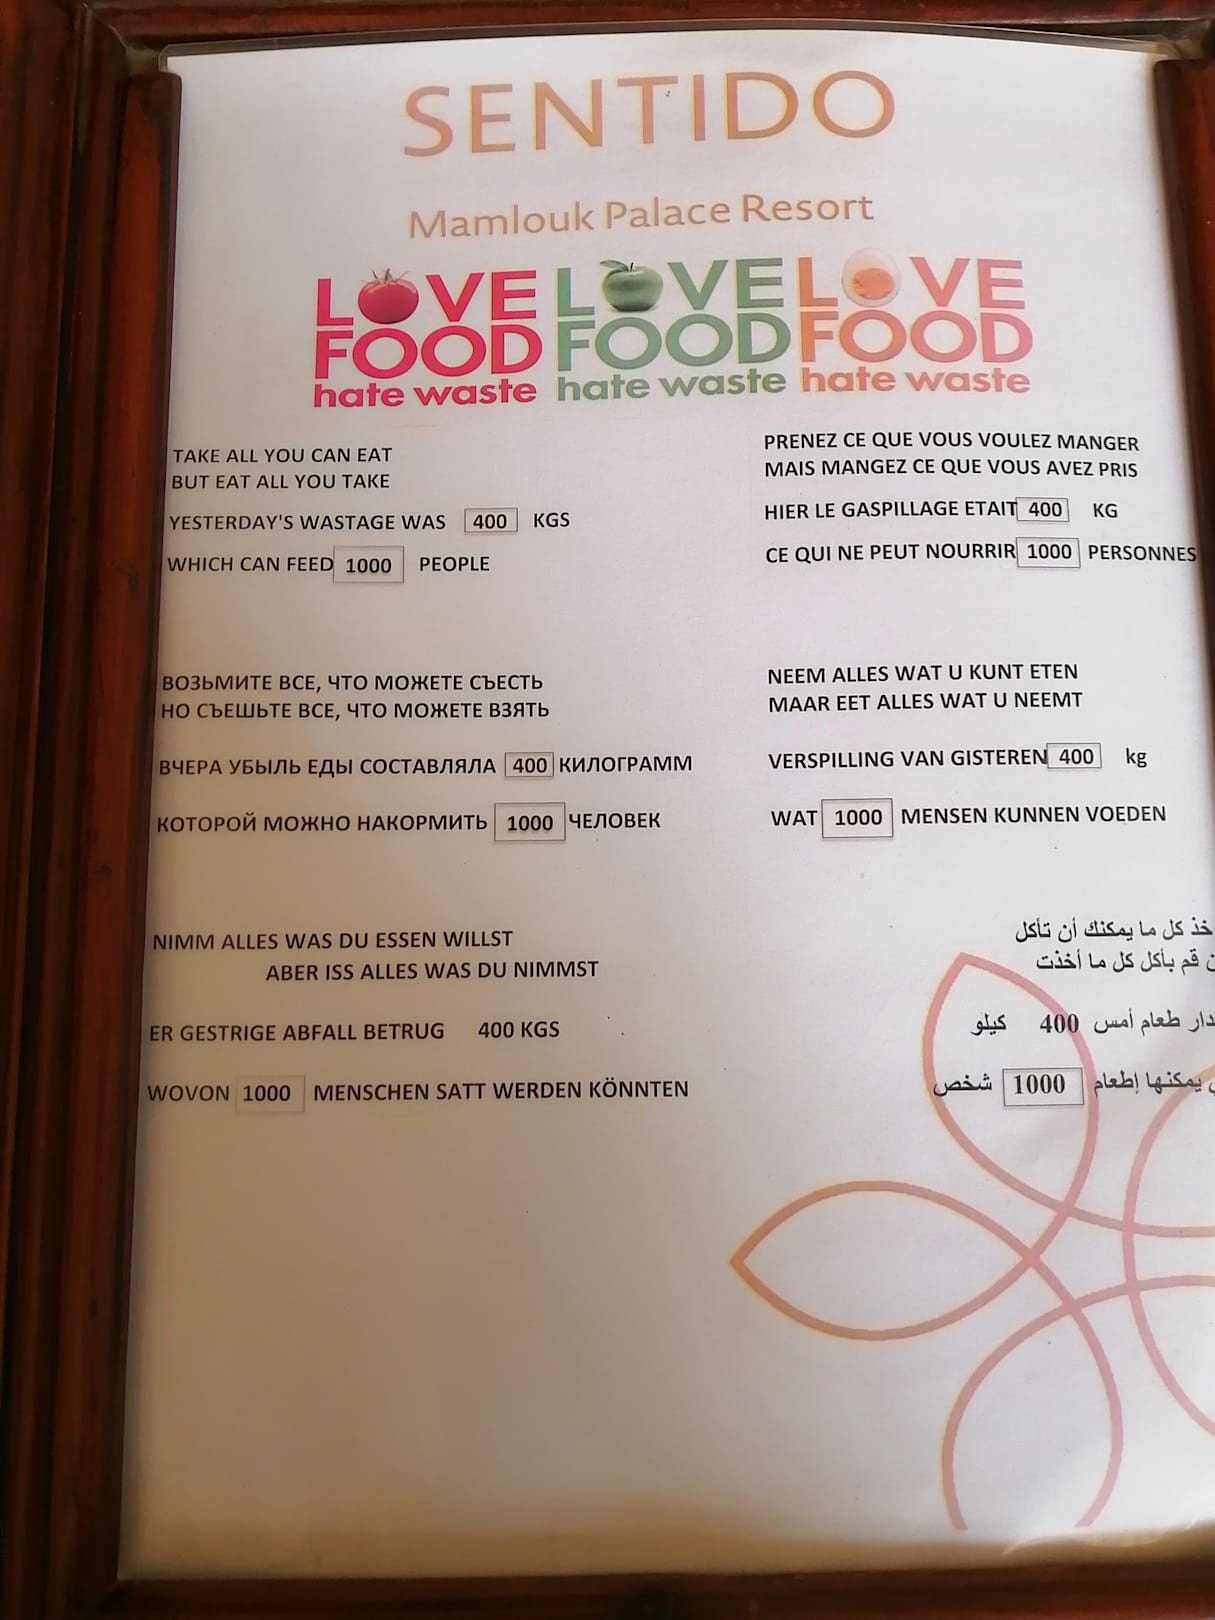 SENTIDO
Mamlouk Palace Resort
LOVE FOOD hate waste
LOVE FOOD hate waste
LOVE FOOD hate waste
TAKE ALL YOU CAN EAT
BUT EAT ALL YOU TAKE
YESTERDAY'S WASTAGE WAS 400 KGS
WHICH CAN FEED 1000 PEOPLE
PRENEZ CE QUE VOUS VOULEZ MANGER
MAIS MANGEZ CE QUE VOUS AVEZ PRIS
HIER LE GASPILLAGE ETAIT 400 KG
CE QUI NE PEUT NOURRIR 1000 PERSONNES
ВОЗЬМИТЕ ВСЕ, ЧТО МОЖЕТЕ СЪЕСТЬ
НО СЪЕШЬТЕ ВСЕ, ЧТО МОЖЕТЕ ВЗЯТЬ
ВЧЕРА УБЫЛЬ ЕДЫ СОСТАВЛЯЛА 400 КИЛОГРАММ
КОТОРОЙ МОЖНО НАКОРМИТЬ 1000 ЧЕЛОВЕК
NEEM ALLES WAT U KUNT ETEN
MAAR EET ALLES WAT U NEEMT
VERSPILLING VAN GISTEREN 400 kg
WAT 1000 MENSEN KUNNEN VOEDEN
NIMM ALLES WAS DU ESSEN WILLST
ABER ISS ALLES WAS DU NIMMST
ER GESTRIGE ABFALL BETRUG 400 KGS
WOVON 1000 MENSCHEN SATT WERDEN KÖNNTEN
خذ كل ما يمكنك أن تأكل
قم بأكل كل ما أخذت
طعام أمس 400 كيلو
يمكنها إطعام 1000 شخص